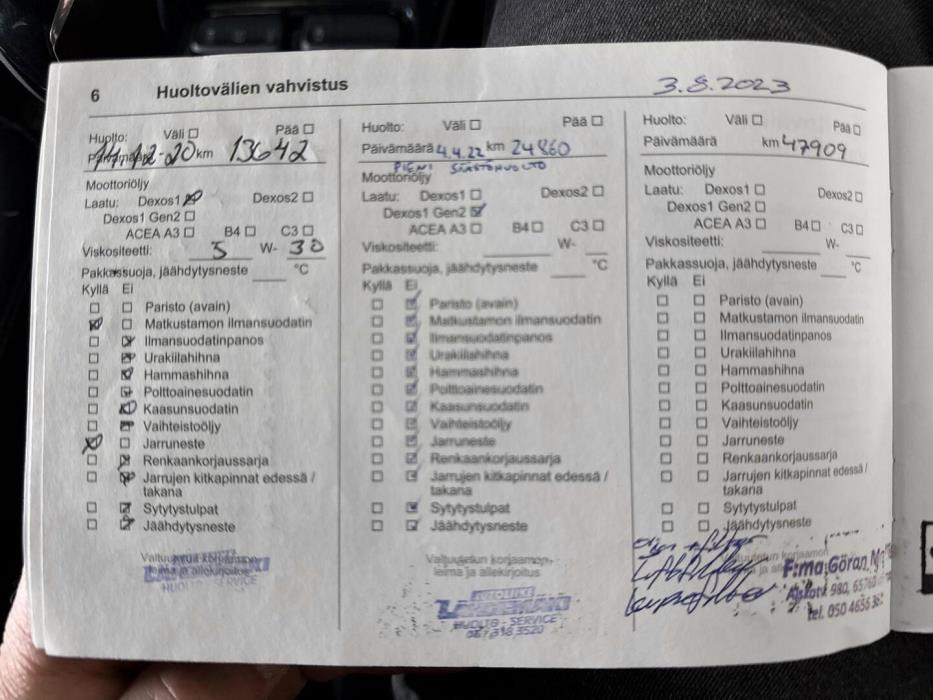 6 Huoltovälien vahvistus
3.8.2023
Huolto: Väli Pää
Päivämäärä 14.12-20 km 13642
Moottoriöljy
Laatu: Dexos1 Dexos2
Dexos1 Gen2
ACEA A3 B4 C3
Viskositeetti: 5 W- 30
Pakkassuoja, jäähdytysneste °C
Kyllä Ei
Paristo (avain)
Matkustamon ilmansuodatin
Ilmansuodatinpanos
Urakiilahihna
Hammashihna
Polttoainesuodatin
Kaasunsuodatin
Vaihteistoöljy
Jarruneste
Renkaankorjaussarja
Jarrujen kitkapinnat edessä /
takana
Sytytystulpat
Jäähdytysneste
Valtuutetun korjaamon
leima ja allekirjoitus
HUOLTO - SERVICE
Huolto: Väli Pää
Päivämäärä 4.4.22 km 24860
PIENI SÄÄSTÖHUOLTO
Moottoriöljy
Laatu: Dexos1 Dexos2
Dexos1 Gen2
ACEA A3 B4 C3
Viskositeetti: W-
Pakkassuoja, jäähdytysneste °C
Kyllä Ei
Paristo (avain)
Matkustamon ilmansuodatin
Ilmansuodatinpanos
Urakiilahihna
Hammashihna
Polttoainesuodatin
Kaasunsuodatin
Vaihteistoöljy
Jarruneste
Renkaankorjaussarja
Jarrujen kitkapinnat edessä /
takana
Sytytystulpat
Jäähdytysneste
Valtuutetun korjaamon
leima ja allekirjoitus
AUTOLIIKE
HUOLTO - SERVICE
3520
Huolto: Väli Pää
Päivämäärä km 47909
Moottoriöljy
Laatu: Dexos1 Dexos2
Dexos1 Gen2
ACEA A3 B4 C3
Viskositeetti: W-
Pakkassuoja, jäähdytysneste °C
Kyllä Ei
Paristo (avain)
Matkustamon ilmansuodatin
Ilmansuodatinpanos
Urakiilahihna
Hammashihna
Polttoainesuodatin
Kaasunsuodatin
Vaihteistoöljy
Jarruneste
Renkaankorjaussarja
Jarrujen kitkapinnat edessä /
takana
Sytytystulpat
Jäähdytysneste
korjaamon
F:ma Göran
980, 65760
tel. 050 4656